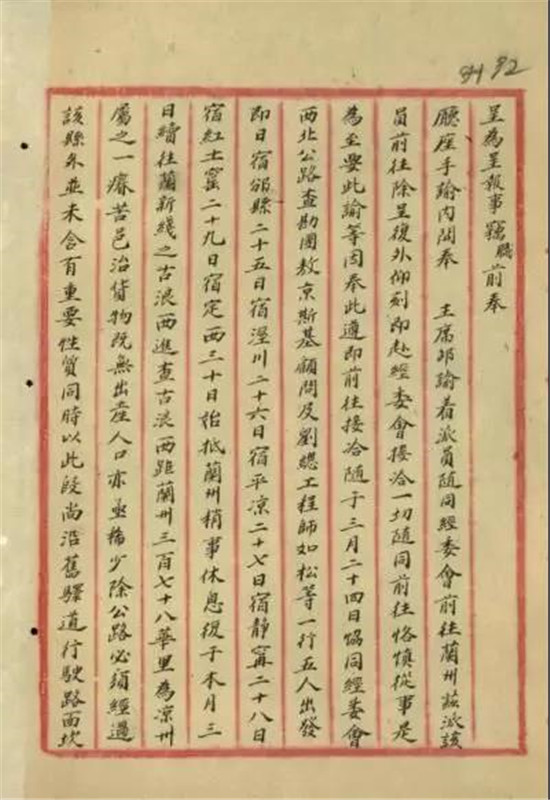 呈為呈報事竊職前奉
廳座手諭內開奉 主席邵諭着派員隨同經委會前往蘭州茲派該
員前往除呈復外仰刻即赴經委會接洽一切隨同前往恪慎從事是
為至要此諭等因奉此遵即前往接洽隨于三月二十四日協同經委會
西北公路查勘團敖京斯基顧問及劉總工程師如松等一行五人出發
即日宿邠縣二十五日宿涇川二十六日宿平凉二十七日宿靜甯二十八日
宿紅土窰二十九日宿定西三十日始抵蘭州稍事休息復于本月三
日續往蘭新綫之古浪西進查古浪西距蘭州三百七十八華里為凉州
屬之一瘠苦邑治貨物既無出產人口亦亟稀少除公路必須經過
該縣外並未含有重要性質同時以此段尚沿舊驛道行駛路面坎
92